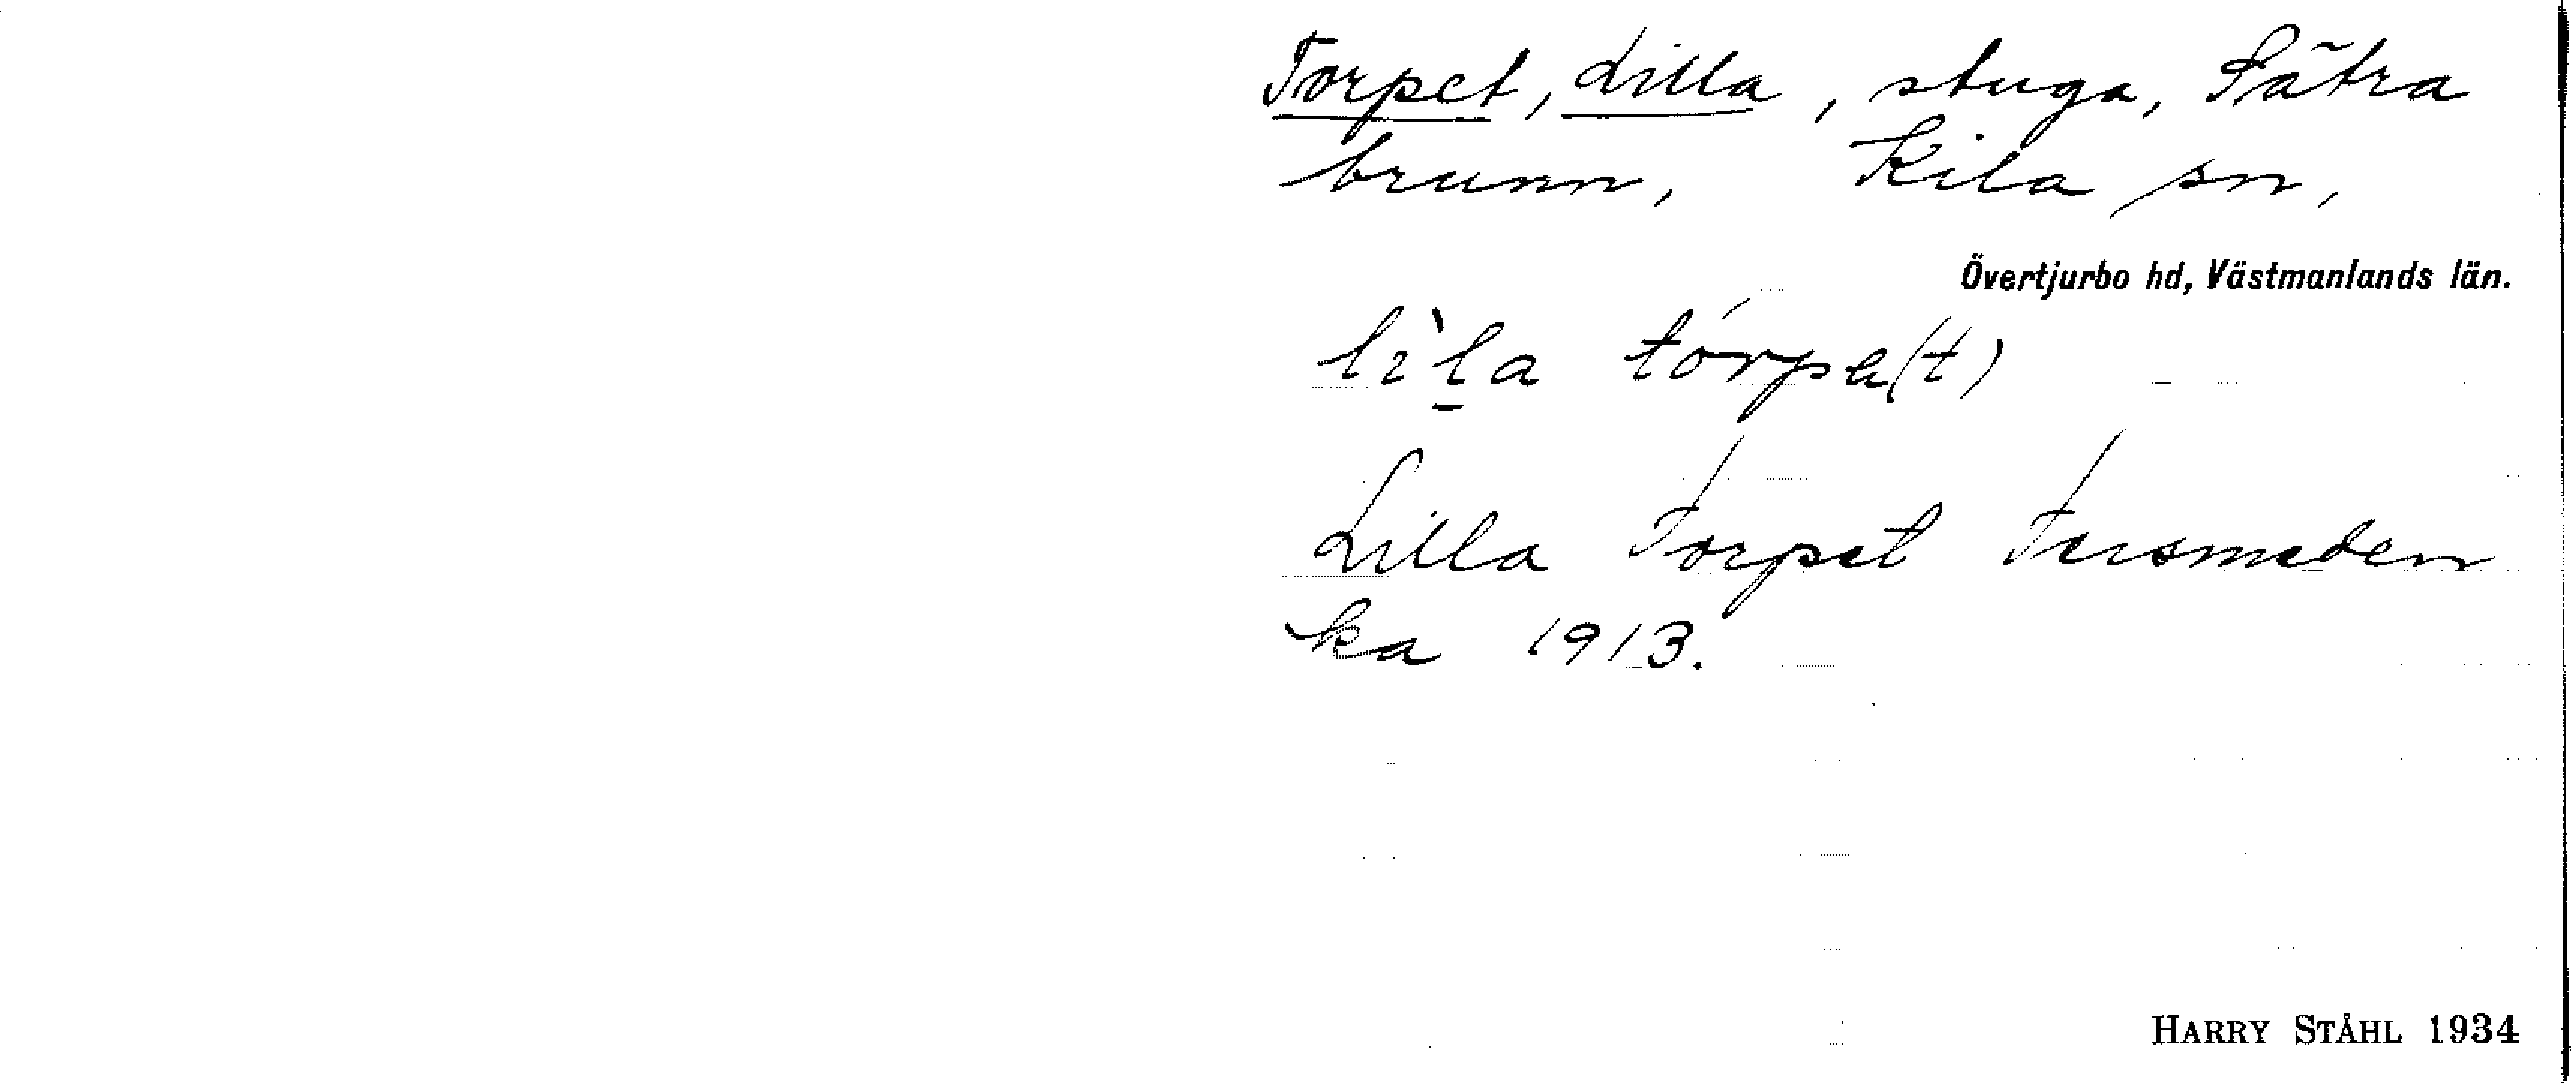 Torpet, Lilla, stuga, Sätra
brunn, Kila sn,
Övertjurbo hd, Västmanlands län.
lìla tórpe(t)
Lilla Torpet Tersmeden
ka 1913.
HARRY STÅHL 1934